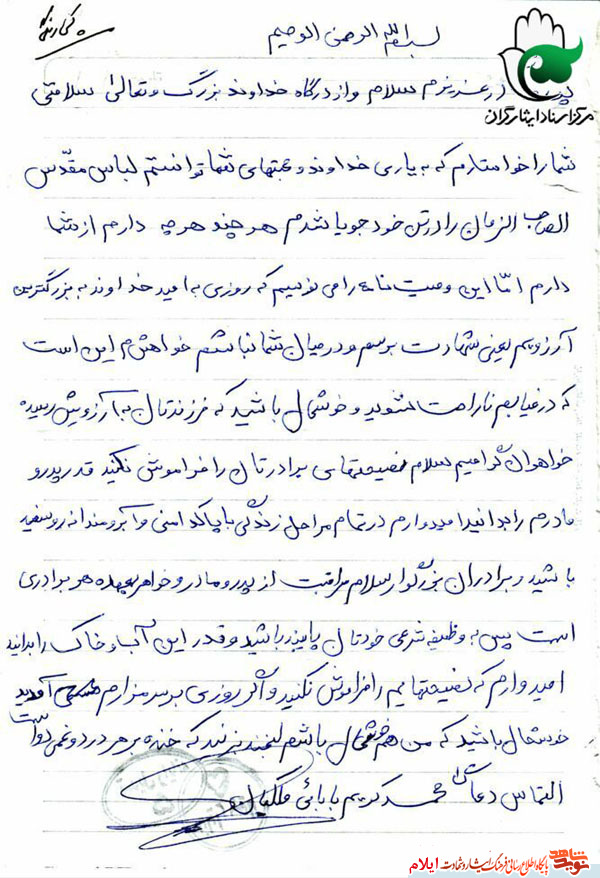 بسم الله الرحمن الرحیم
مرکز اسناد ایثارگران
عزیزم سلام و از درگاه خداوند بزرگ و تعالی سلامتی
شما را خواستارم که به یاری خداوند و محبتهای شما توانستم لباس مقدس
الصاحب الزمان را در تن خود جویا شدم هر چند هر چه دارم از شما
دارم اما این وصیت نامه را می نویسم که روزی به امید خداوند به بزرگترین
آرزویم یعنی شهادت برسم و در میان شما نباشم خواهش م این است
که در غیابم ناراحت نشوید و خوشحال باشید که فرزندتان به آرزویش رسیده
خواهران گرامیم سلام نصیحتهای برادرتان را فراموش نکنید قدر پدر و
مادرم را بدانید امیدوارم در تمام مراحل زندگی با پاکدامنی و آبرومندانه روسفید
باشید و برادران بزرگوار سلام مراقبت از پدر و مادر و خواهر بعهده هر برادری
است پس به وظیفه شرعی خودتان پایبند باشید و قدر این آب و خاک را بدانید
امیدوارم که نصیحتهایم را فراموش نکنید و اگر روزی بر سر مزارم آمدید
خوشحال باشید که من هم خوشحال باشم لبخند بزنید که خنده بر هر درد و غمی دواست
التماس دعا محمد کریم بابائی فلکیان
شاهد
نوید
پایگاه اطلاع رسانی فرهنگ ایثار و شهادت ایلام